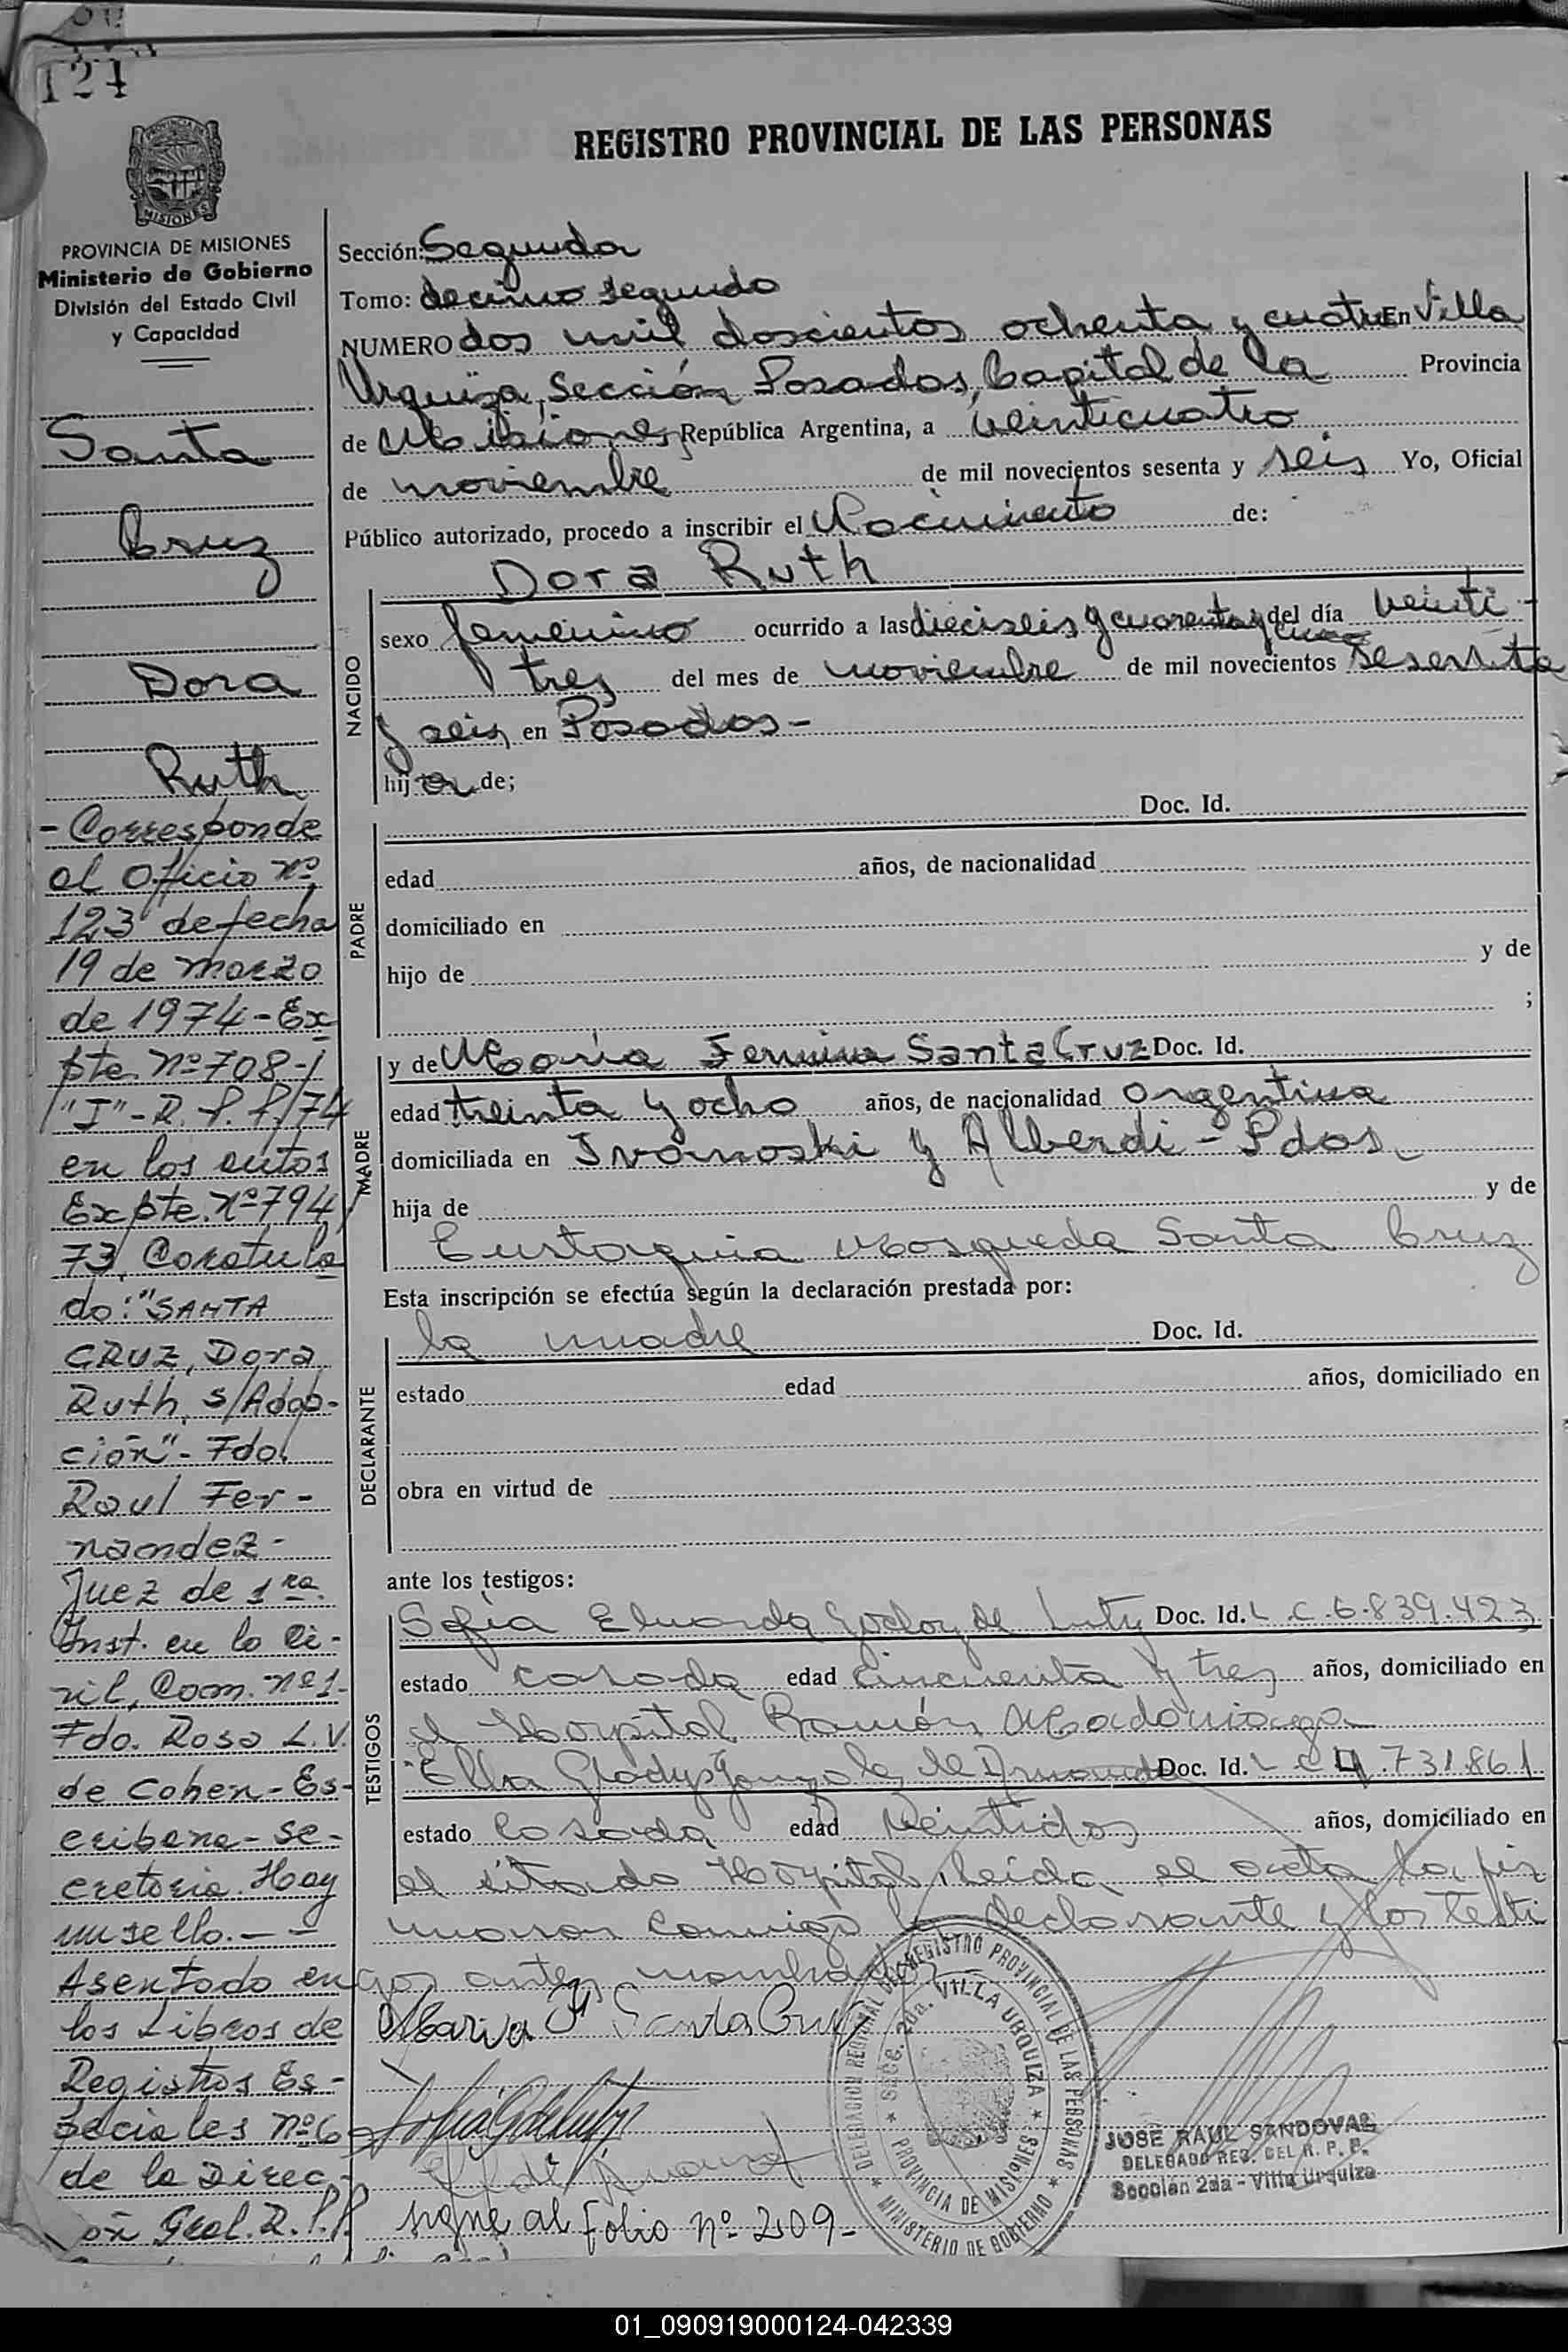 124
REGISTRO PROVINCIAL DE LAS PERSONAS
MISIONES
PROVINCIA DE MISIONES
Ministerio de Gobierno
División del Estado Civil
y Capacidad
Santa
Cruz
Dora
Ruth
- Corresponde
al Oficio Nº
123 de fecha
19 de marzo
de 1974 - Ex
pte. Nº 708 -
"I" - R. P. P./74
en los autos
Expte. Nº 794/
73, Caratula
do: "SANTA
CRUZ, Dora
Ruth, s/Adop-
ción" - Fdo.
Raul Fer-
nandez -
Juez de 1ra.
Inst. en lo Ci-
vil, Com. Nº 1.
Fdo. Rosa L. V.
de Cohen - Es-
cribana - Se-
cretaria. Hay
un sello. - -
Asentado en
los Libros de
Registros Es-
peciales Nº 6
de la Direc-
ón Gral. R. P. P.
Sección: Segunda
Tomo: decimo segundo
NUMERO dos mil doscientos ochenta y cuatro En Villa
Urquiza, Sección Posadas, Capital de la Provincia
de Misiones, República Argentina, a veinticuatro
de noviembre de mil novecientos sesenta y seis Yo, Oficial
Público autorizado, procedo a inscribir el Nacimiento de:
NACIDO
Dora Ruth
sexo femenino ocurrido a las dieciseis y cuarenta y cinco del día veinti-
tres del mes de noviembre de mil novecientos sesenta
y seis en Posadas -
hija de;
PADRE
Doc. Id.
edad años, de nacionalidad
domiciliado en
hijo de y de
;
MADRE
y de María Fermina Santa Cruz Doc. Id.
edad treinta y ocho años, de nacionalidad argentina
domiciliada en Ivanoski y Alberdi - Pdas.
hija de y de
Eustaquia Mosqueda Santa Cruz
Esta inscripción se efectúa según la declaración prestada por:
DECLARANTE
la madre Doc. Id.
estado edad años, domiciliado en
obra en virtud de
ante los testigos:
TESTIGOS
Sofia Eduarda Godoy de Doc. Id. L C. 6.839.423
estado casada edad cincuenta y tres años, domiciliado en
el Hospital Ramón Madariaga
Elba Gladys Gonzalez de Doc. Id. L C 4.731.861
estado casada edad veintidos años, domiciliado en
el citado Hospital, leida el acta la fir
maron conmigo la declarante y los testi
gos antes nombrados
Maria F. Santa Cruz
sigue al folio Nº 209 -
DELEGACION REGIONAL DEL REGISTRO PROVINCIAL DE LAS PERSONAS
SECC. 2da. VILLA URQUIZA
PROVINCIA DE MISIONES
MINISTERIO DE GOBIERNO
JOSE RAUL SANDOVAL
DELEGADO REG. DEL R. P. P.
Sección 2da - Villa Urquiza
01_090919000124-042339